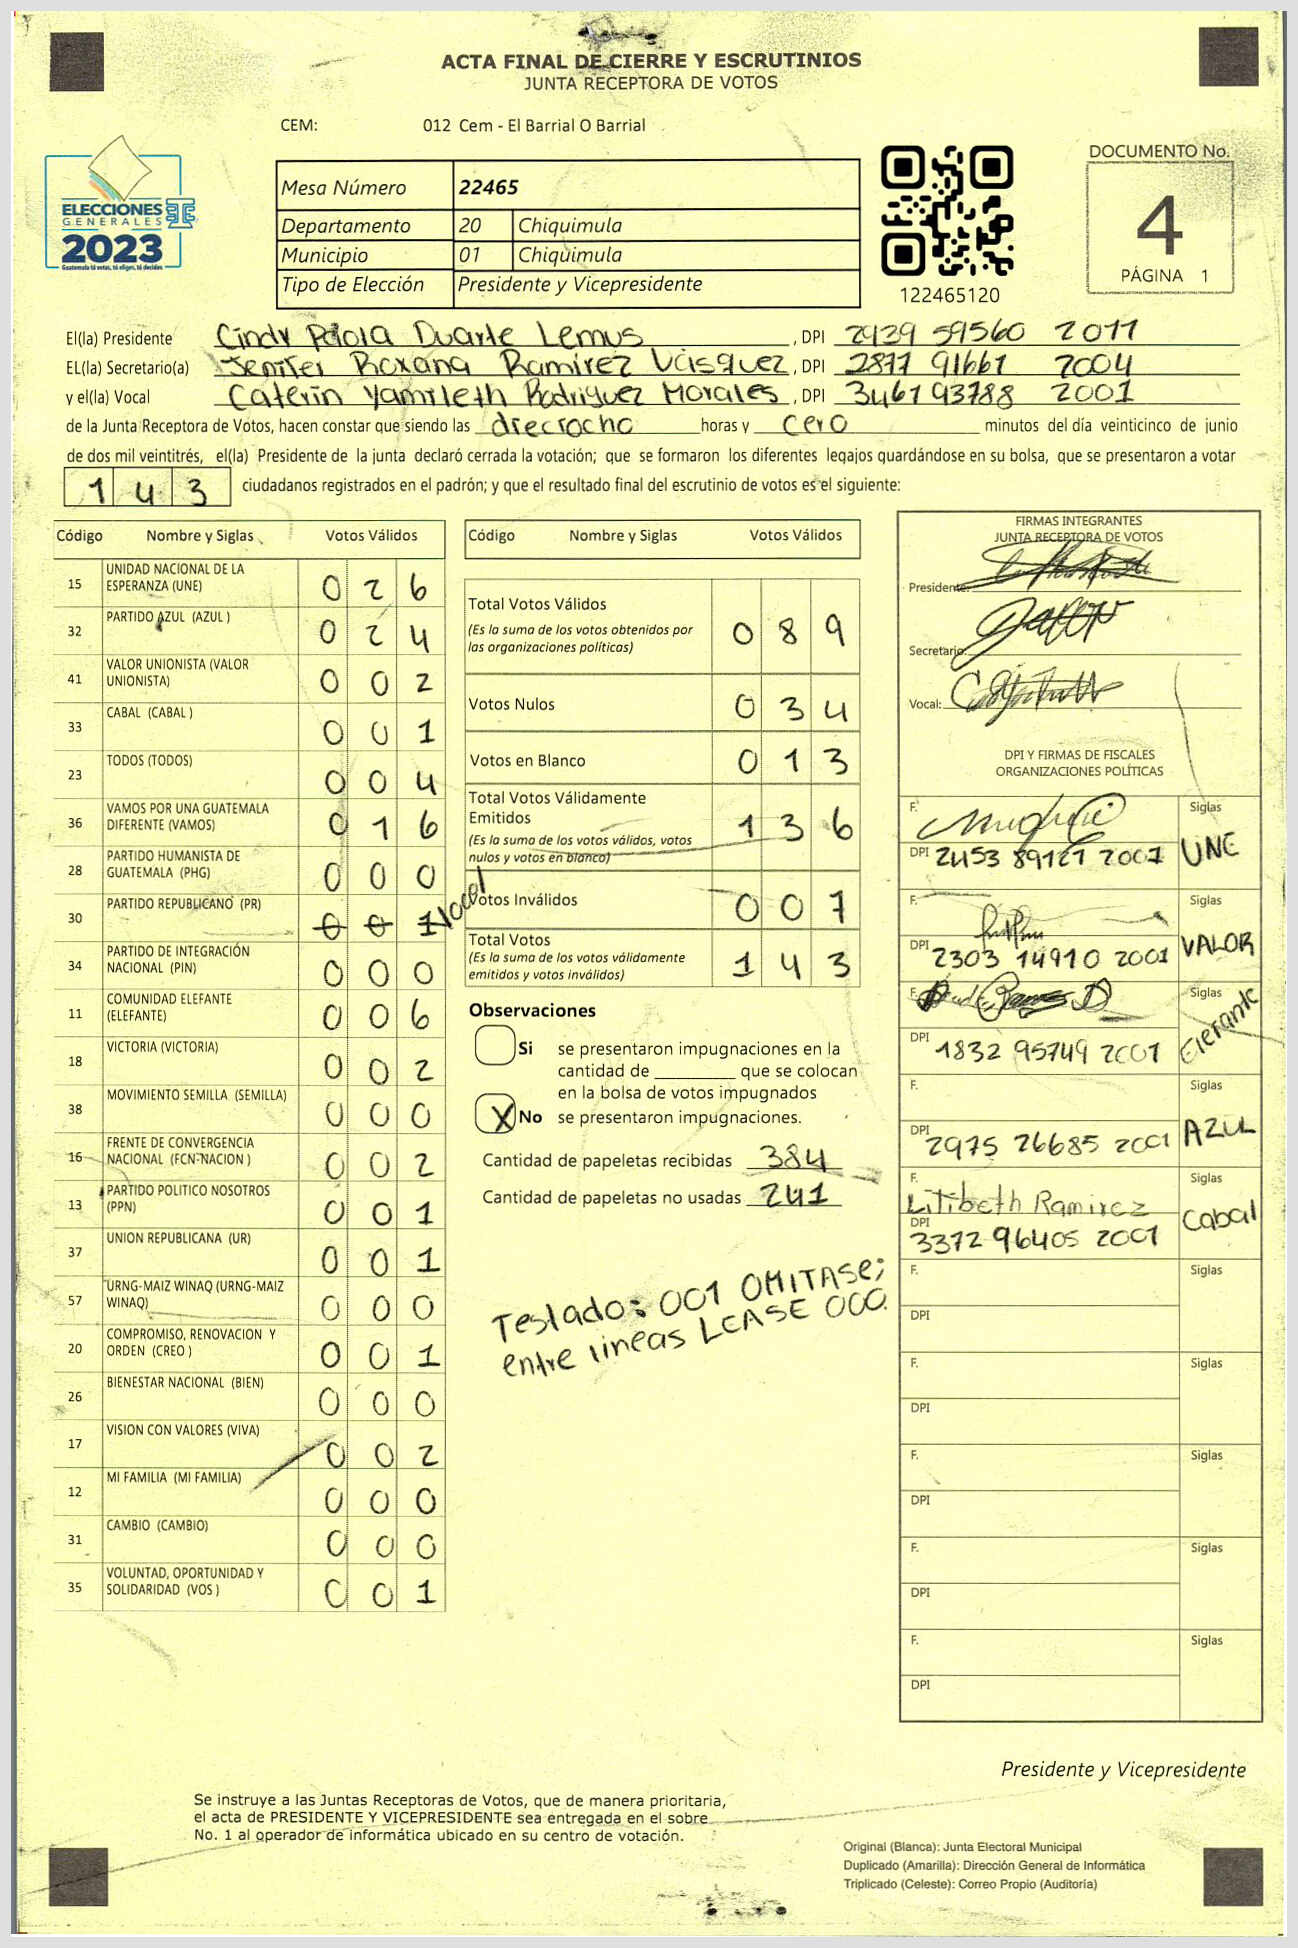 ACTA FINAL DE CIERRE Y ESCRUTINIOS
JUNTA RECEPTORA DE VOTOS
CEM: 012 Cem - El Barrial O Barrial
ELECCIONES
GENERALES
2023
Guatemala tú votas, tú eliges, tú decides
Mesa Número 22465
Departamento 20 Chiquimula
Municipio 01 Chiquimula
Tipo de Elección Presidente y Vicepresidente
122465120
DOCUMENTO No.
4
PÁGINA 1
El(la) Presidente Cindy Paola Duarte Lemus, DPI 2939 59560 2011
EL(la) Secretario(a) Jenifer Roxana Ramirez Vásquez, DPI 2877 91661 2004
y el(la) Vocal Caterin Yamileth Rodriguez Morales, DPI 3461 93788 2001
de la Junta Receptora de Votos, hacen constar que siendo las dieciocho horas y cero minutos del día veinticinco de junio
de dos mil veintitrés, el(la) Presidente de la junta declaró cerrada la votación; que se formaron los diferentes legajos quardándose en su bolsa, que se presentaron a votar
143 ciudadanos registrados en el padrón; y que el resultado final del escrutinio de votos es el siguiente:
Código Nombre y Siglas Votos Válidos
15 UNIDAD NACIONAL DE LA ESPERANZA (UNE) 0 2 6
32 PARTIDO AZUL (AZUL ) 0 2 4
41 VALOR UNIONISTA (VALOR UNIONISTA) 0 0 2
33 CABAL (CABAL ) 0 0 1
23 TODOS (TODOS) 0 0 4
36 VAMOS POR UNA GUATEMALA DIFERENTE (VAMOS) 0 1 6
28 PARTIDO HUMANISTA DE GUATEMALA (PHG) 0 0 0
30 PARTIDO REPUBLICANO (PR) 0 0 1 Vocal
34 PARTIDO DE INTEGRACIÓN NACIONAL (PIN) 0 0 0
11 COMUNIDAD ELEFANTE (ELEFANTE) 0 0 6
18 VICTORIA (VICTORIA) 0 0 2
38 MOVIMIENTO SEMILLA (SEMILLA) 0 0 0
16 FRENTE DE CONVERGENCIA NACIONAL (FCN-NACION ) 0 0 2
13 PARTIDO POLITICO NOSOTROS (PPN) 0 0 1
37 UNION REPUBLICANA (UR) 0 0 1
57 URNG-MAIZ WINAQ (URNG-MAIZ WINAQ) 0 0 0
20 COMPROMISO, RENOVACION Y ORDEN (CREO ) 0 0 1
26 BIENESTAR NACIONAL (BIEN) 0 0 0
17 VISION CON VALORES (VIVA) 0 0 2
12 MI FAMILIA (MI FAMILIA) 0 0 0
31 CAMBIO (CAMBIO) 0 0 0
35 VOLUNTAD, OPORTUNIDAD Y SOLIDARIDAD (VOS ) 0 0 1
Código Nombre y Siglas Votos Válidos
Total Votos Válidos 0 8 9
(Es la suma de los votos obtenidos por
las organizaciones políticas)
Votos Nulos 0 3 4
Votos en Blanco 0 1 3
Total Votos Válidamente
Emitidos 1 3 6
(Es la suma de los votos válidos, votos
nulos y votos en blanco)
Votos Inválidos 0 0 7
Total Votos 1 4 3
(Es la suma de los votos válidamente
emitidos y votos inválidos)
Observaciones
Si se presentaron impugnaciones en la
cantidad de ________ que se colocan
en la bolsa de votos impugnados
X No se presentaron impugnaciones.
Cantidad de papeletas recibidas 384
Cantidad de papeletas no usadas 241
Testado: 001 OMITASE;
entre lineas LEASE 000.
FIRMAS INTEGRANTES
JUNTA RECEPTORA DE VOTOS
Presidente:
Secretario:
Vocal:
DPI Y FIRMAS DE FISCALES
ORGANIZACIONES POLÍTICAS
F. Siglas
DPI 2453 89121 2001 UNE
F. Siglas
DPI 2303 14910 2001 VALOR
F. Siglas
DPI 1832 95749 2001 Elefante
F. Siglas
DPI 2975 26685 2001 AZUL
F. Litibeth Ramirez Siglas
DPI 3372 96405 2001 Cabal
F. Siglas
DPI
F. Siglas
DPI
F. Siglas
DPI
F. Siglas
DPI
F. Siglas
DPI
Presidente y Vicepresidente
Se instruye a las Juntas Receptoras de Votos, que de manera prioritaria,
el acta de PRESIDENTE Y VICEPRESIDENTE sea entregada en el sobre
No. 1 al operador de informática ubicado en su centro de votación.
Original (Blanca): Junta Electoral Municipal
Duplicado (Amarilla): Dirección General de Informática
Triplicado (Celeste): Correo Propio (Auditoría)